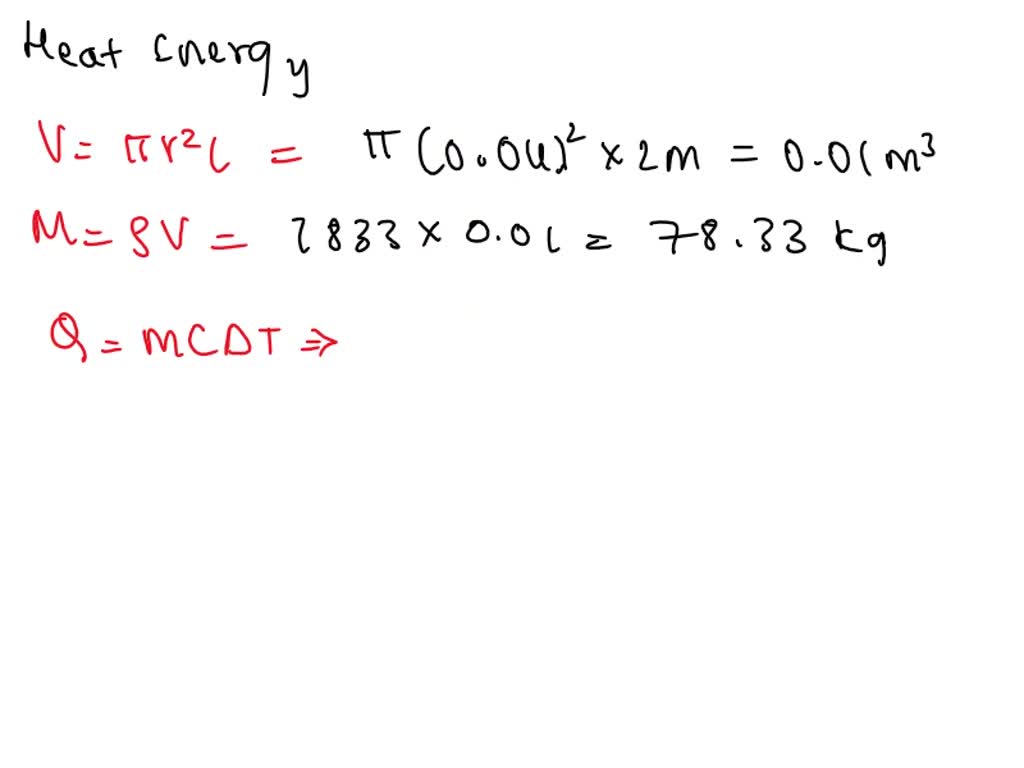 Heat Energy
V = πr²l = π(0.04)² × 2m = 0.01m³
M = ρV = 7833 × 0.01 = 78.33 kg
Q = mCΔT ⇒